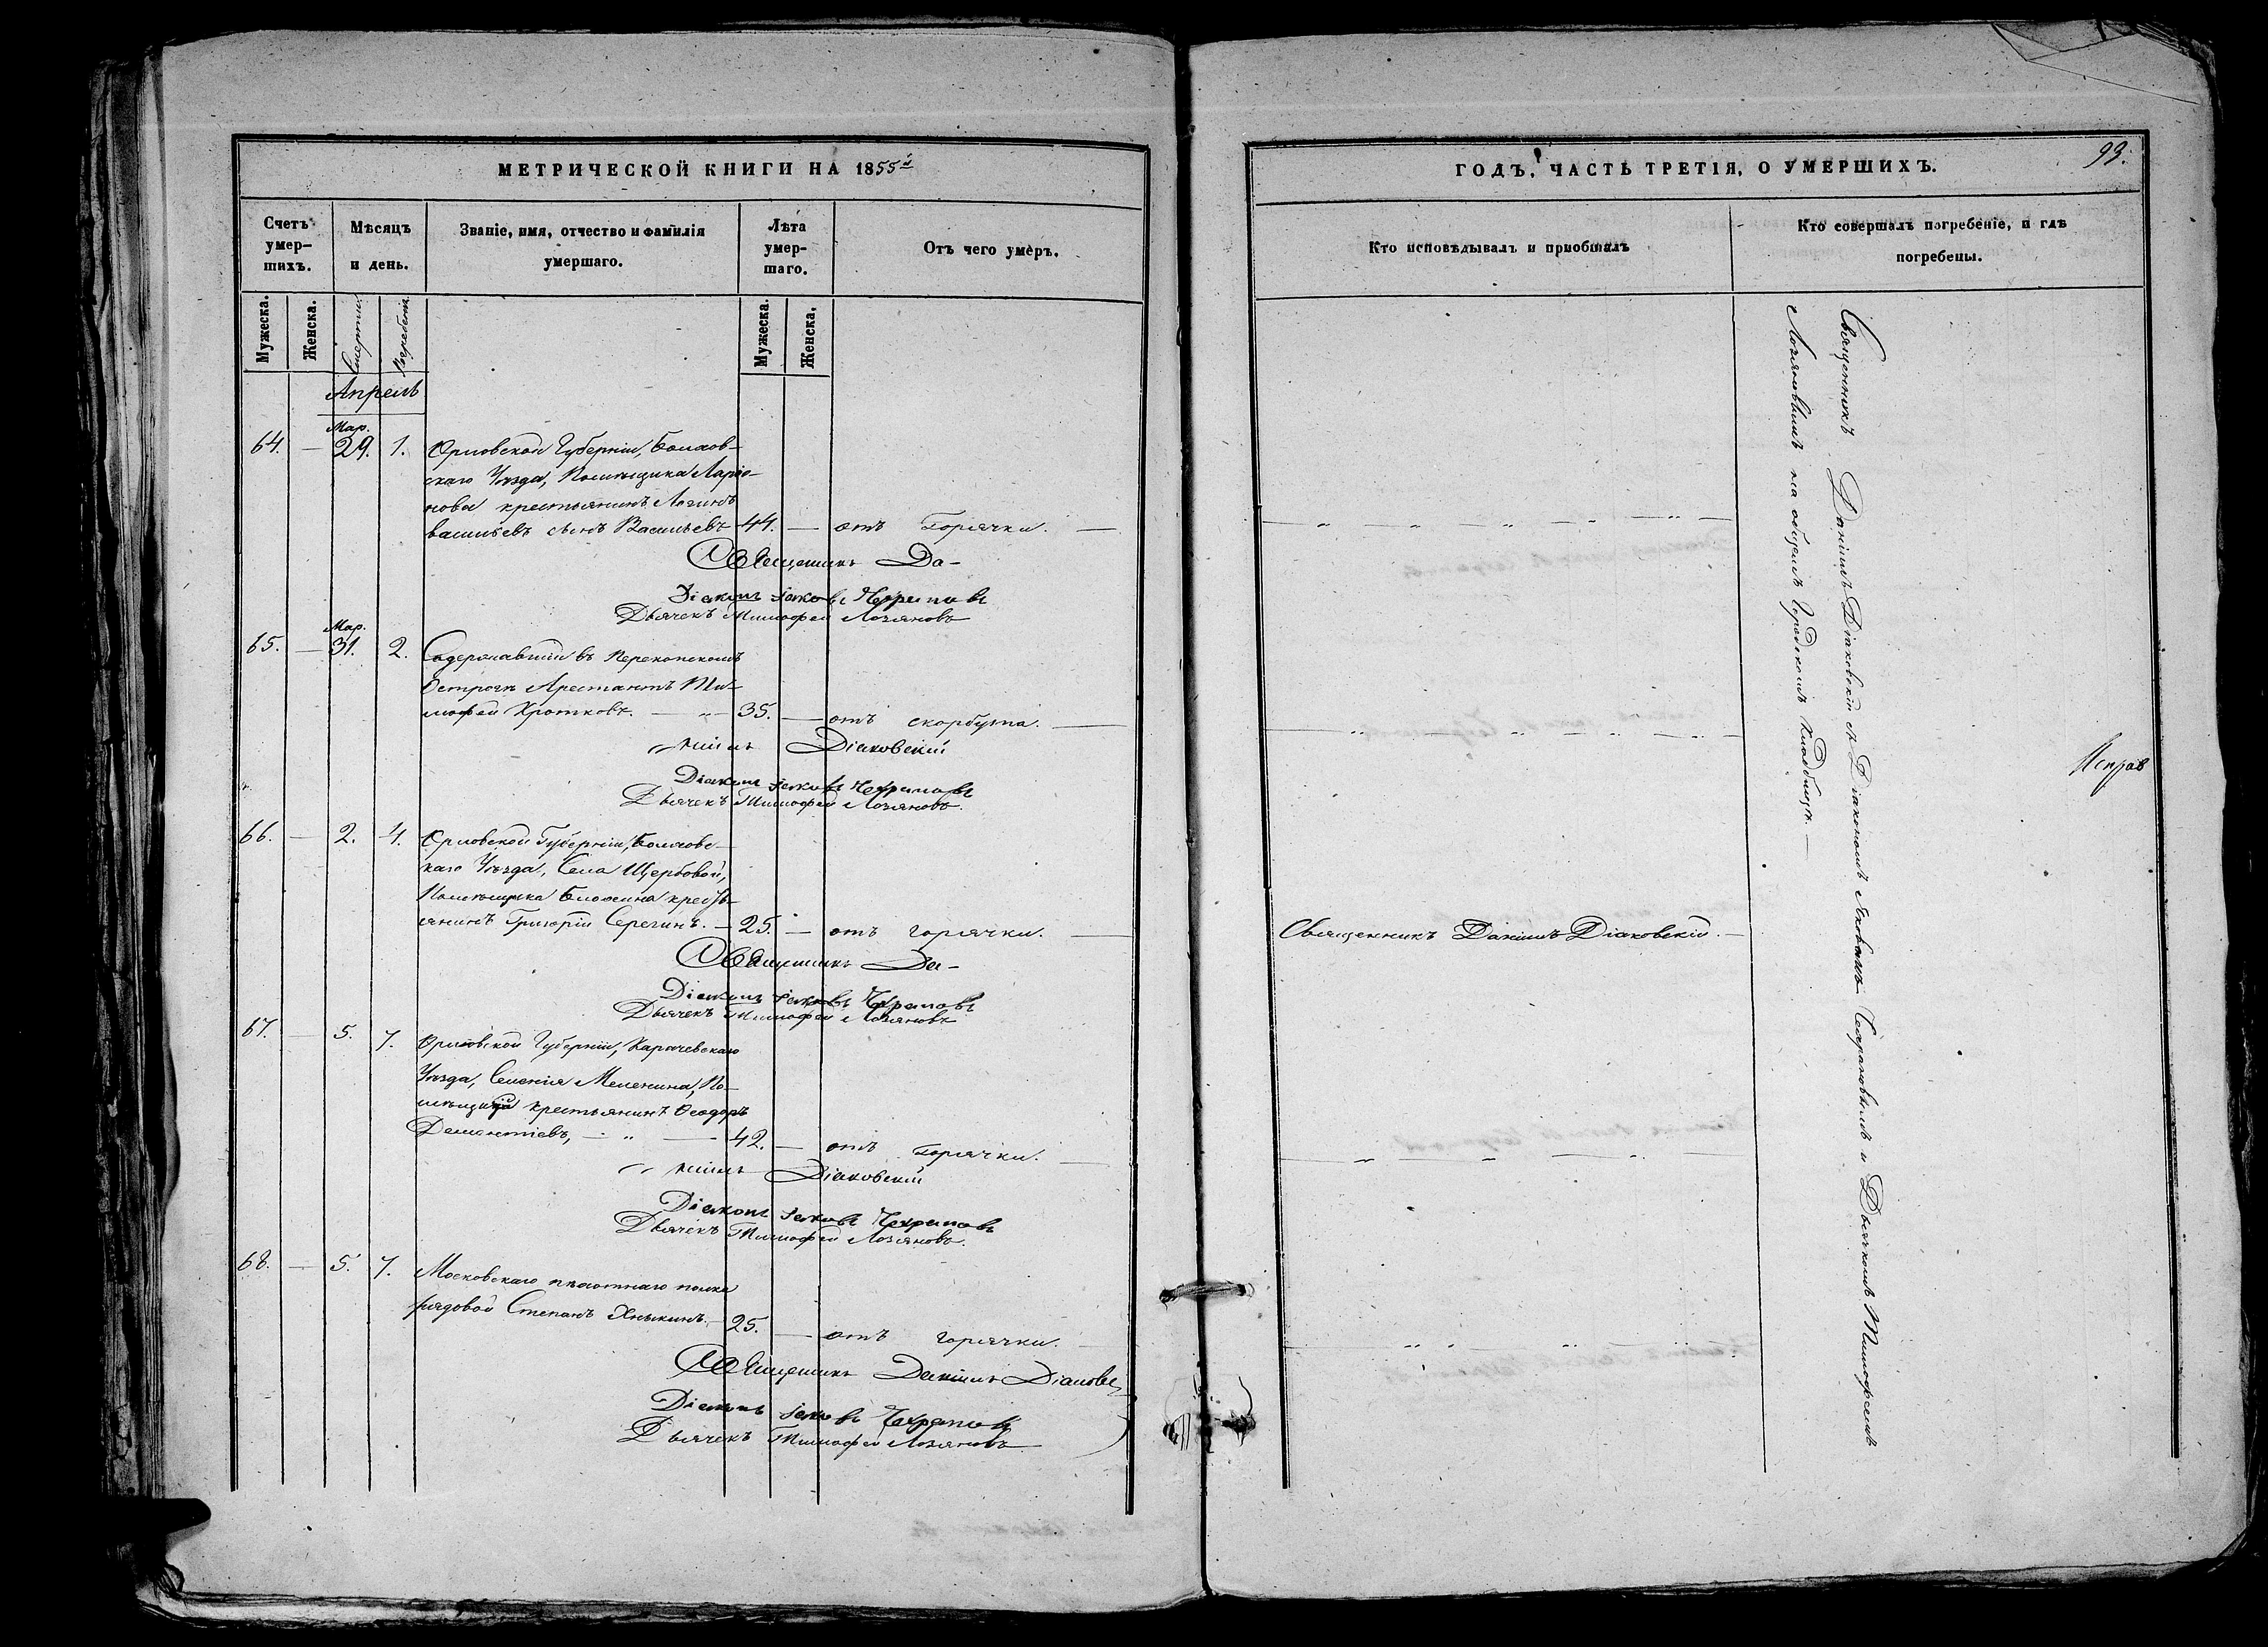 МЕТРИЧЕСКОЙ КНИГИ НА 1855й
Счетъ умер-шихъ.
Мѣсяцъ и день.
Званіе, имя, отчество и фамилія умершаго.
Лѣта умер-шаго.
Отъ чего умеръ.
Мужеска.
Женска.
Смерти.
Погребенія.
Мужеска.
Женска.
Апрель
Мар.
64. — 29. 1. Орловской Губерніи, Болхов-
скаго Уѣзда, Помѣщика Ларіо-
нова крестьянинъ Логинъ
васильевъ сынъ Васильевъ 44. — отъ Горячки. —
Священникъ Да-
Діаконъ Іаковъ
Дьячекъ Тимофей Лозяновъ
Мар.
65. — 31. 2. Содержавшійся въ Перекопскомъ
Острогѣ Арестантъ Ти-
мофей Кротковъ. — „ — 35. — отъ скорбута. —
ніилъ Діаковскій
Діаконъ Іаковъ
Дьячекъ Тимофей Лозяновъ.
66. — 2. 4. Орловской Губерніи, Болховс-
каго Уѣзда, Села Щербовой,
Помѣщика крест-
янинъ Григорій Серегинъ. — 25. — отъ горячки. —
Священникъ Да-
Діаконъ Іаковъ
Дьячекъ Тимофей Лозяновъ
67. — 5. 7. Орловской Губерніи, Карачевскаго
Уѣзда, Селенія Меленина, По-
мѣщика крестьянинъ Ѳеодоръ
Дементіевъ, — „ — 42. — отъ Горячки. —
ніилъ Діаковскій
Діаконъ Іаковъ
Дьячекъ Тимофей Лозяновъ.
68. — 5. 7. Московскаго пѣхотнаго полка
рядовой Степанъ Хныкинъ. — 25. — отъ горячки. —
Священникъ Даніилъ Діаковс
Діаконъ Іаковъ
Дьячекъ Тимофей Лозяновъ
ГОДЪ, ЧАСТЬ ТРЕТІЯ, О УМЕРШИХЪ.
93.
Кто исповѣдывалъ и пріобщалъ
Кто совершалъ погребеніе, и гдѣ
погребены.
Священникъ Даніилъ Діаковскій. —
Священникъ Даніилъ Діаковскій съ Діакономъ Яковомъ и Дьячкомъ Тимофеемъ
Лозяновымъ на общемъ Городскомъ Кладбищѣ. —